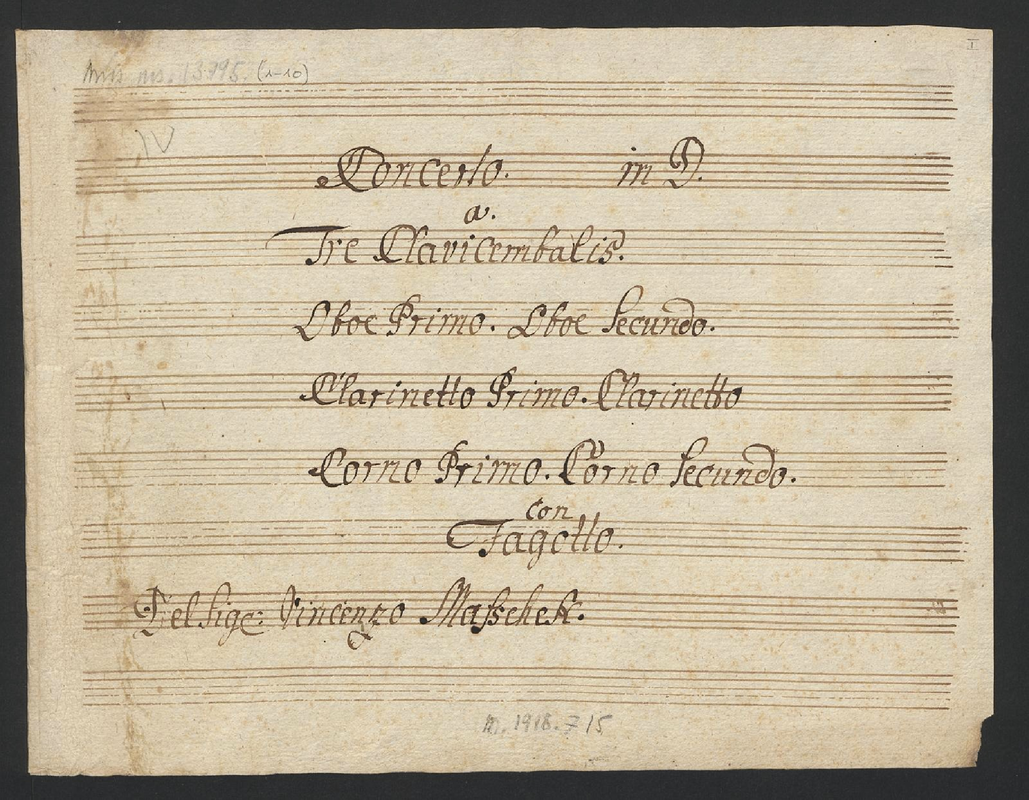 I
Mus. ms. 13795. (1-10)
IV
Concerto. in D.
a.
Tre Clavicembalis.
Oboe Primo. Oboe Secundo.
Clarinetto Primo. Clarinetto
Corno Primo. Corno Secundo.
con
Fagotto.
Del Sigr: Vincenzo Masschek.
M. 1918.715